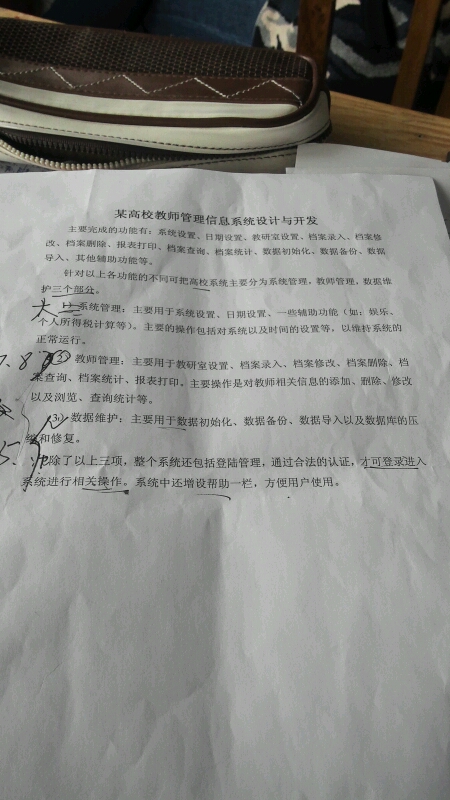 某高校教师管理信息系统设计与开发
主要完成的功能有：系统设置、日期设置、教研室设置、档案录入、档案修
改、档案删除、报表打印、档案查询、档案统计、数据初始化、数据备份、数据
导入、其他辅助功能等。
针对以上各功能的不同可把高校系统主要分为系统管理，教师管理，数据维
护三个部分。
系统管理：主要用于系统设置、日期设置、一些辅助功能（如：娱乐、
个人所得税计算等）。主要的操作包括对系统以及时间的设置等，以维持系统的
正常运行。
教师管理：主要用于教研室设置、档案录入、档案修改、档案删除、档
案查询、档案统计、报表打印，主要操作是对教师相关信息的添加、删除、修改
以及浏览、查询统计等。
3）数据维护：主要用于数据初始化、数据备份、数据导入以及数据库的压
缩和修复。
除了以上三项，整个系统还包括登陆管理，通过合法的认证，才可登录进入
系统进行相关操作。系统中还增设帮助一栏，方便用户使用。